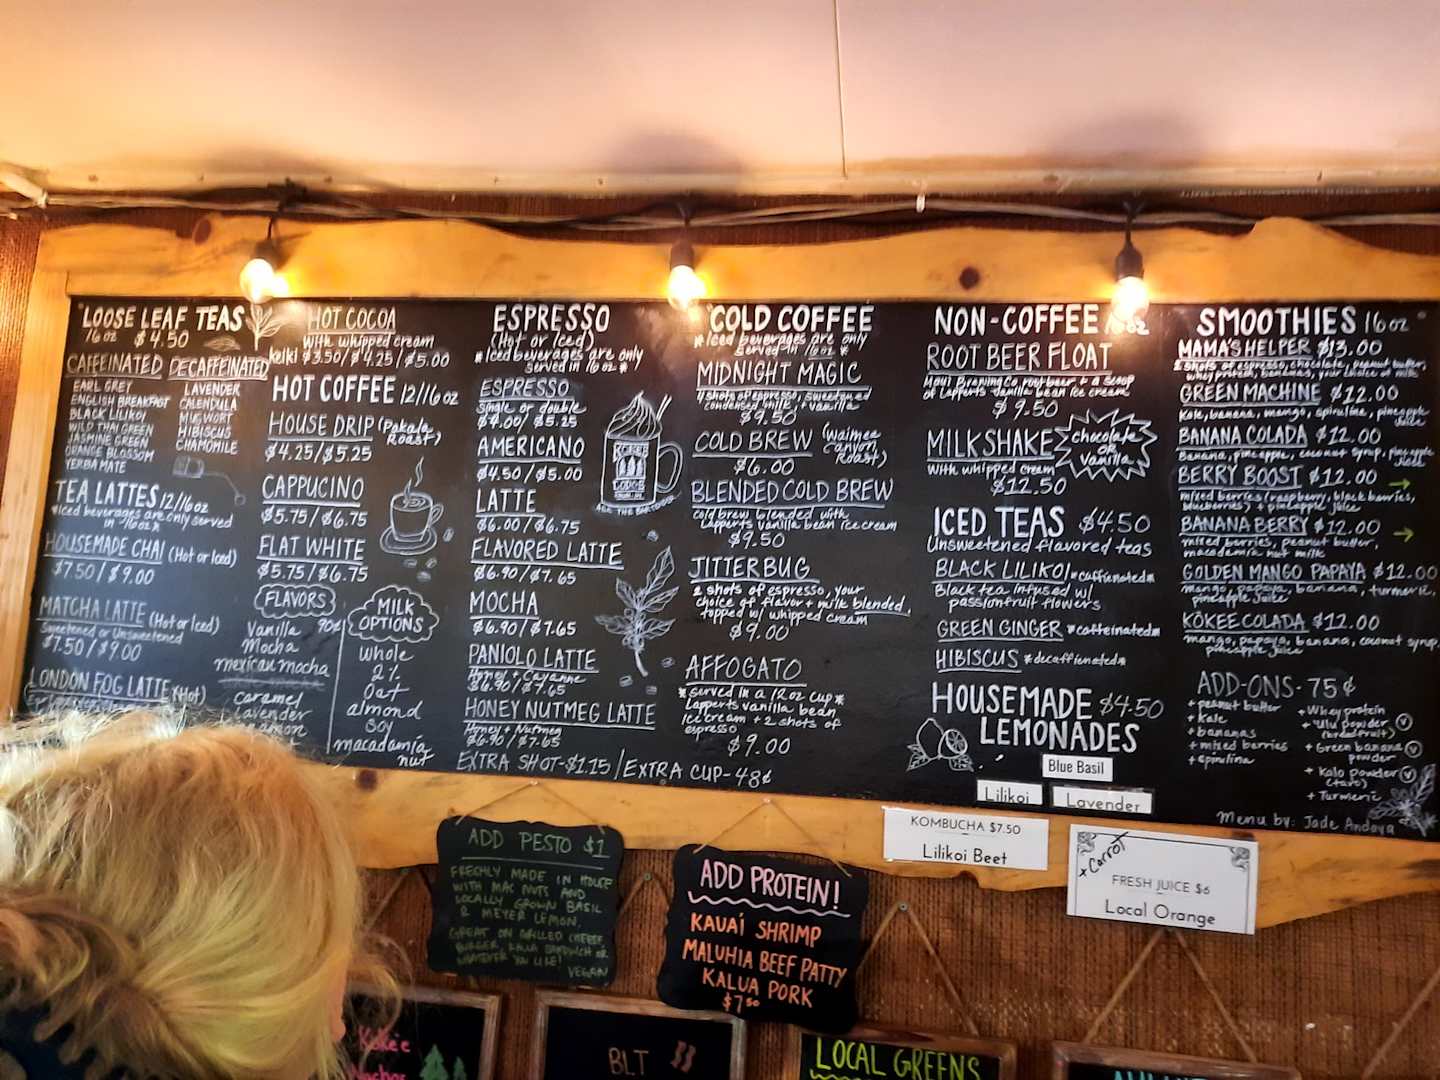 LOOSE LEAF TEAS
16oz $4.50
CAFFEINATED
EARL GREY
ENGLISH BREAKFAST
BLACK LILIKOI
WILD THAI GREEN
JASMINE GREEN
ORANGE BLOSSOM
YERBA MATE
DECAFFEINATED
LAVENDER
CALENDULA
MUGWORT
HIBISCUS
CHAMOMILE
TEA LATTES 12/16oz
*Iced beverages are only served
in 16oz*
HOUSEMADE CHAI (Hot or Iced)
$7.50/$9.00
MATCHA LATTE (Hot or Iced)
Sweetened or Unsweetened
$7.50/$9.00
LONDON FOG LATTE (Hot)
HOT COCOA
with whipped cream
keiki $3.50/$4.25/$5.00
HOT COFFEE 12/16oz
HOUSE DRIP (Pakala
Roast)
$4.25/$5.25
CAPPUCINO
$5.75/$6.75
FLAT WHITE
$5.75/$6.75
FLAVORS
90¢
Vanilla
Mocha
mexican mocha
caramel
lavender
MILK
OPTIONS
whole
2%
Oat
almond
soy
macadamia
nut
ESPRESSO
(Hot or Iced)
*Iced beverages are only
served in 16oz*
ESPRESSO
Single or double
$4.00/$5.25
AMERICANO
$4.50/$5.00
LATTE
$6.00/$6.75
FLAVORED LATTE
$6.90/$7.65
MOCHA
$6.90/$7.65
PANIOLO LATTE
Honey + Cayanne
$6.90/$7.65
HONEY NUTMEG LATTE
Honey + Nutmeg
$6.90/$7.65
EXTRA SHOT-$1.15/EXTRA CUP-48¢
KOKEE
LODGE
COLD COFFEE
*Iced beverages are only
served in 16oz*
MIDNIGHT MAGIC
4 shots of espresso, sweetened
condensed milk, + vanilla
$9.50
COLD BREW (Waimea
Canyon
Roast)
$6.00
BLENDED COLD BREW
cold brew blended with
Lapperts vanilla bean ice cream
$9.50
JITTERBUG
2 shots of espresso, your
choice of flavor + milk blended,
topped w/ whipped cream
$9.00
AFFOGATO
*served in a 12oz cup*
Lapperts vanilla bean
Ice cream + 2 shots of
espresso
$9.00
NON-COFFEE 16oz
ROOT BEER FLOAT
Maui Brewing Co. root beer + a scoop
of Lapperts vanilla bean ice cream
$9.50
MILKSHAKE
with whipped cream
$12.50
chocolate
OR
vanilla
ICED TEAS $4.50
Unsweetened flavored teas
BLACK LILIKOI *caffeinated*
Black tea infused w/
passionfruit flowers
GREEN GINGER *caffeinated*
HIBISCUS *decaffienated*
HOUSEMADE $4.50
LEMONADES
Blue Basil
Lilikoi
Lavender
SMOOTHIES 16oz
MAMA'S HELPER $13.00
2 shots of espresso, chocolate, peanut butter,
whey protein, banana, your choice of milk
GREEN MACHINE $12.00
Kale, banana, mango, spirulina, pineapple
juice
BANANA COLADA $12.00
Banana, pineapple, coconut syrup, pineapple
juice
BERRY BOOST $12.00
mixed berries (raspberry, blackberries,
blueberries) + pineapple juice
BANANA BERRY $12.00
mixed berries, peanut butter,
macadamia nut milk
GOLDEN MANGO PAPAYA $12.00
mango, papaya, banana, turmeric,
pineapple juice
KŌKEE COLADA $12.00
mango, papaya, banana, coconut syrup,
pineapple juice
ADD-ONS-75¢
+ peanut butter
+ Kale
+ bananas
+ mixed berries
+ spirulina
+ Whey protein
+ 'Ulu powder
(breadfruit)
+ Green banana
powder
+ Kalo powder
(taro)
+ Turmeric
Menu by: Jade Andaya
KOMBUCHA $7.50
Lilikoi Beet
x Carrot
FRESH JUICE $6
Local Orange
ADD PESTO $1
FRECHLY MADE IN HOUSE
WITH MAC NUTS AND
LOCALLY GROWN BASIL
& MEYER LEMON.
GREAT ON GRILLED CHEESE
BURGER, KALUA SANDWICH OR
WHATEVER YOU LIKE!
VEGAN
ADD PROTEIN!
KAUAÍ SHRIMP
MALUHIA BEEF PATTY
KALUA PORK
$7.50
Kokee
Nachos
BLT
LOCAL GREENS